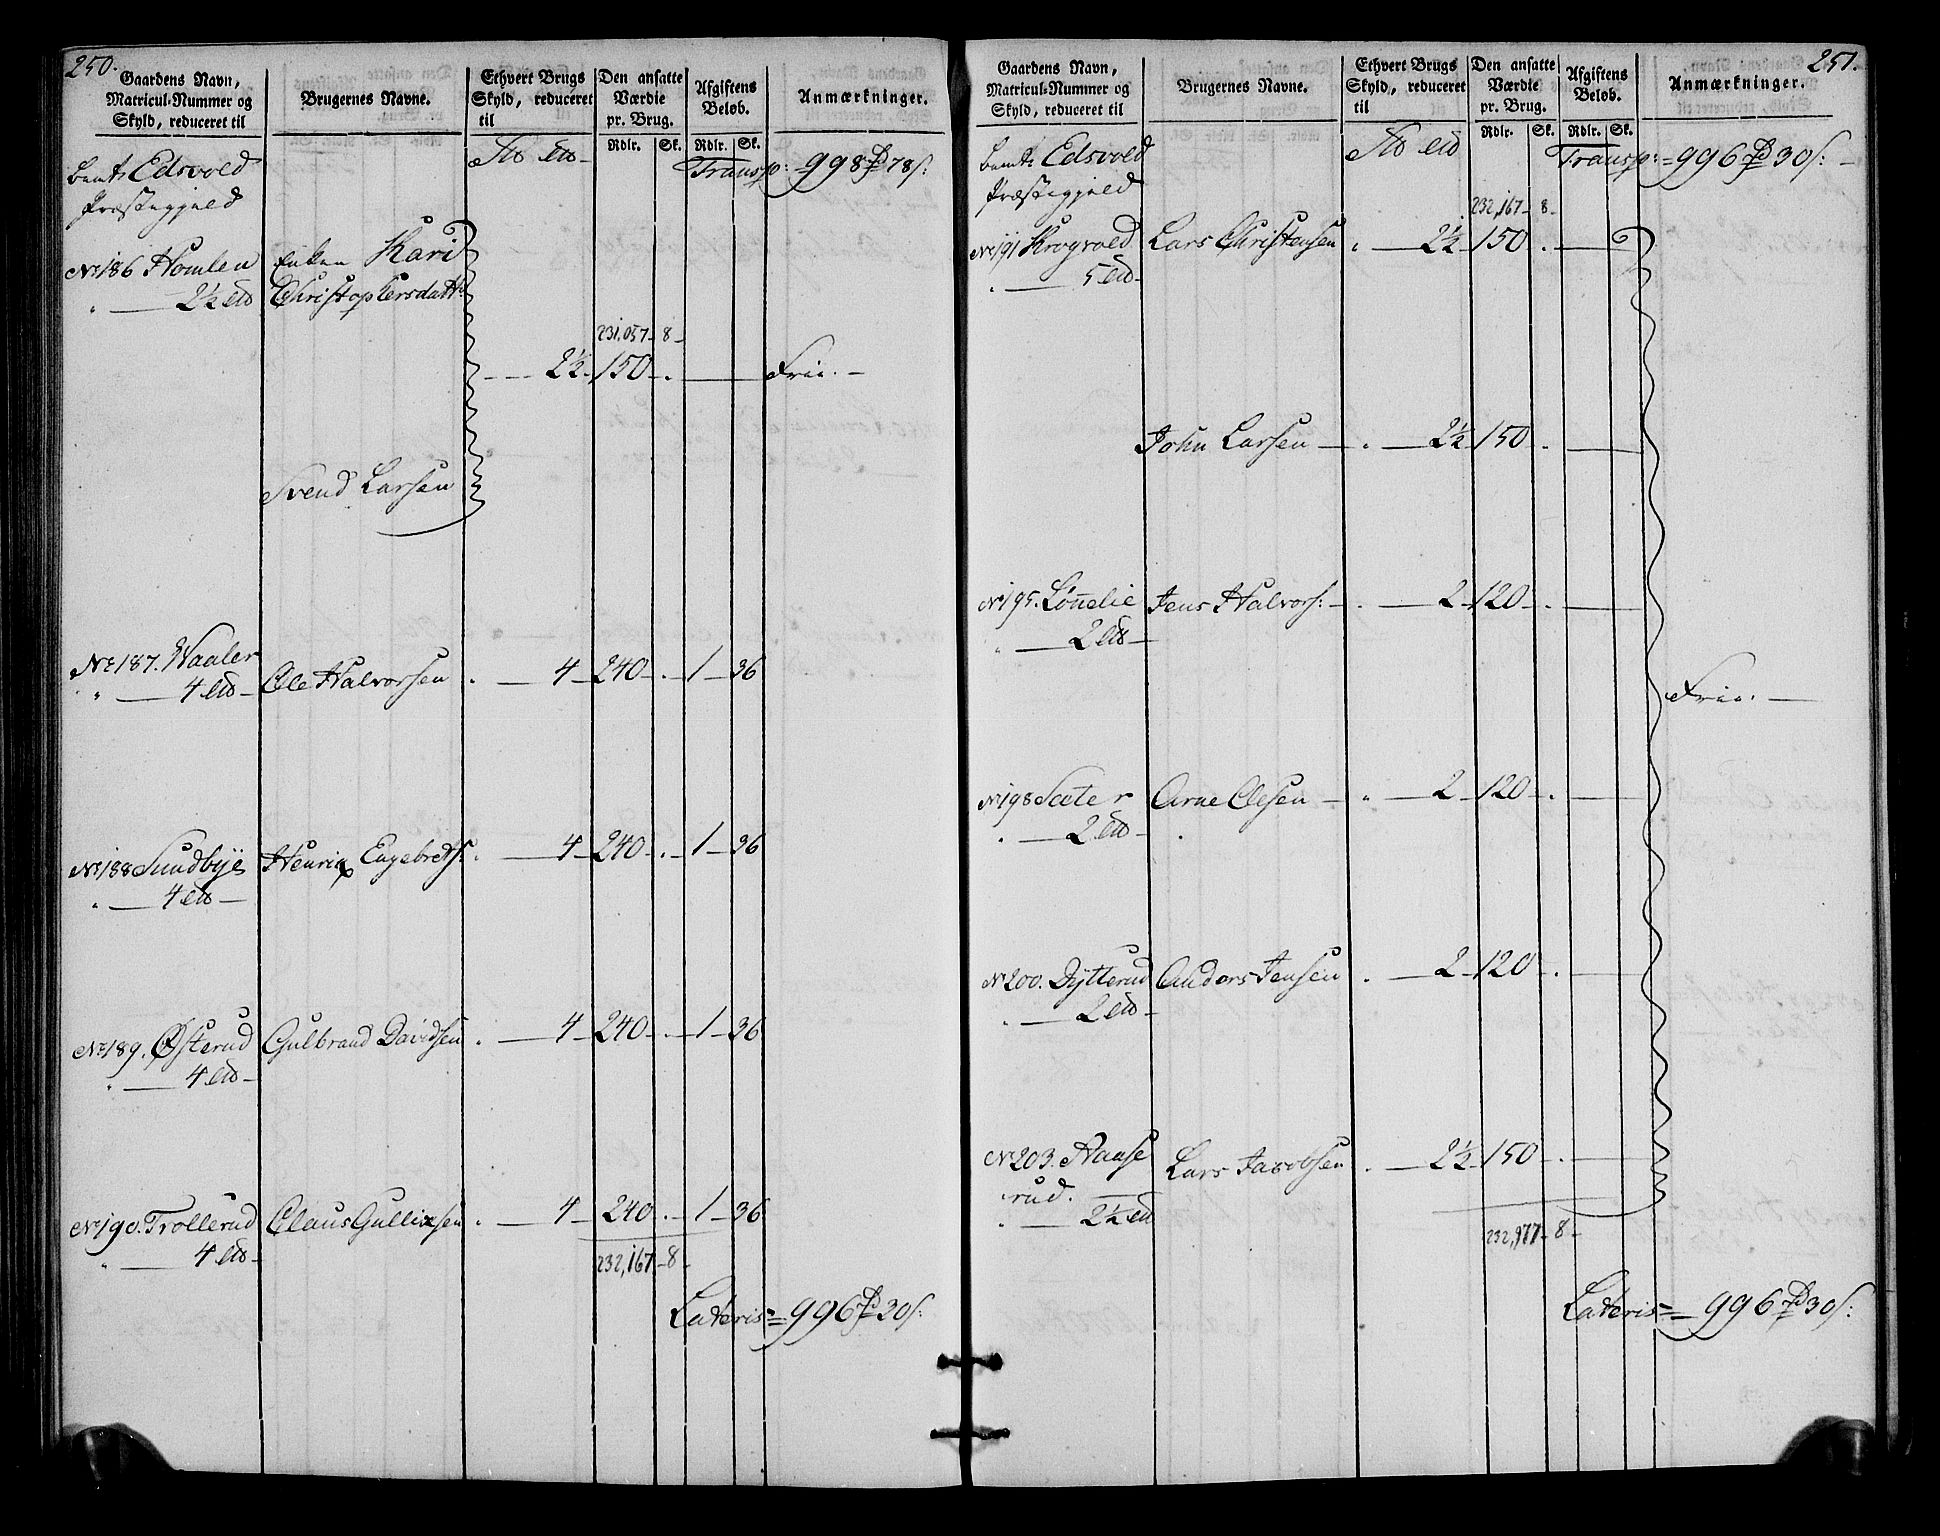 250.
Gaardens Navn, Matricul-Nummer og Skyld, reduceret til
Brugernes Navne.
Ethvert Brugs Skyld, reduceret til
Den ansatte Værdie pr. Brug.
Afgiftens Beløb.
Anmærkninger.
Rdlr. Sk. Rdlr. Sk.
Edsvold
Præstegjeld
Transp: 998 78 s:
No 186 Homlen Enken Kari
2½ Christophersdatt:
231,057 - 8 -
2½ 150 Frie.
Svend Larsen
No 187. Waaler
4 Ole Halvorsen 4 240 1 36
No 188 Sundbÿe Henrix Engebreths: 4 240 1 36
4
No 189. Østerud Gulbrand Davidsen 4 240 1 36
4
No 190. Trollerud Claus Gullixsen 4 240 1 36
4
232,167 - 8 -
Lateris = 996 30 s:
251.
Gaardens Navn, Matricul-Nummer og Skyld, reduceret til
Brugernes Navne.
Ethvert Brugs Skyld, reduceret til
Den ansatte Værdie pr. Brug.
Afgiftens Beløb.
Anmærkninger.
Rdlr. Sk. Rdlr. Sk.
Edsvold
Præstegjeld
Transp: = 996 30 s:
232,167 - 8 -
No 191 Krogvold Lars Christensen 2½ 150
5
John Larsen 2½ 150
No 195. Lønnelie Jens Halvors: 2 120
2
Frie.
No 198 Sæter Arne Olesen 2 120
2
No 200. Dÿtterud Anders Jensen 2 120
2
No 203. Haase
rud. Lars Jacobsen 2½ 150
2½
232,977 - 8 -
Lateris = 996 30 s: